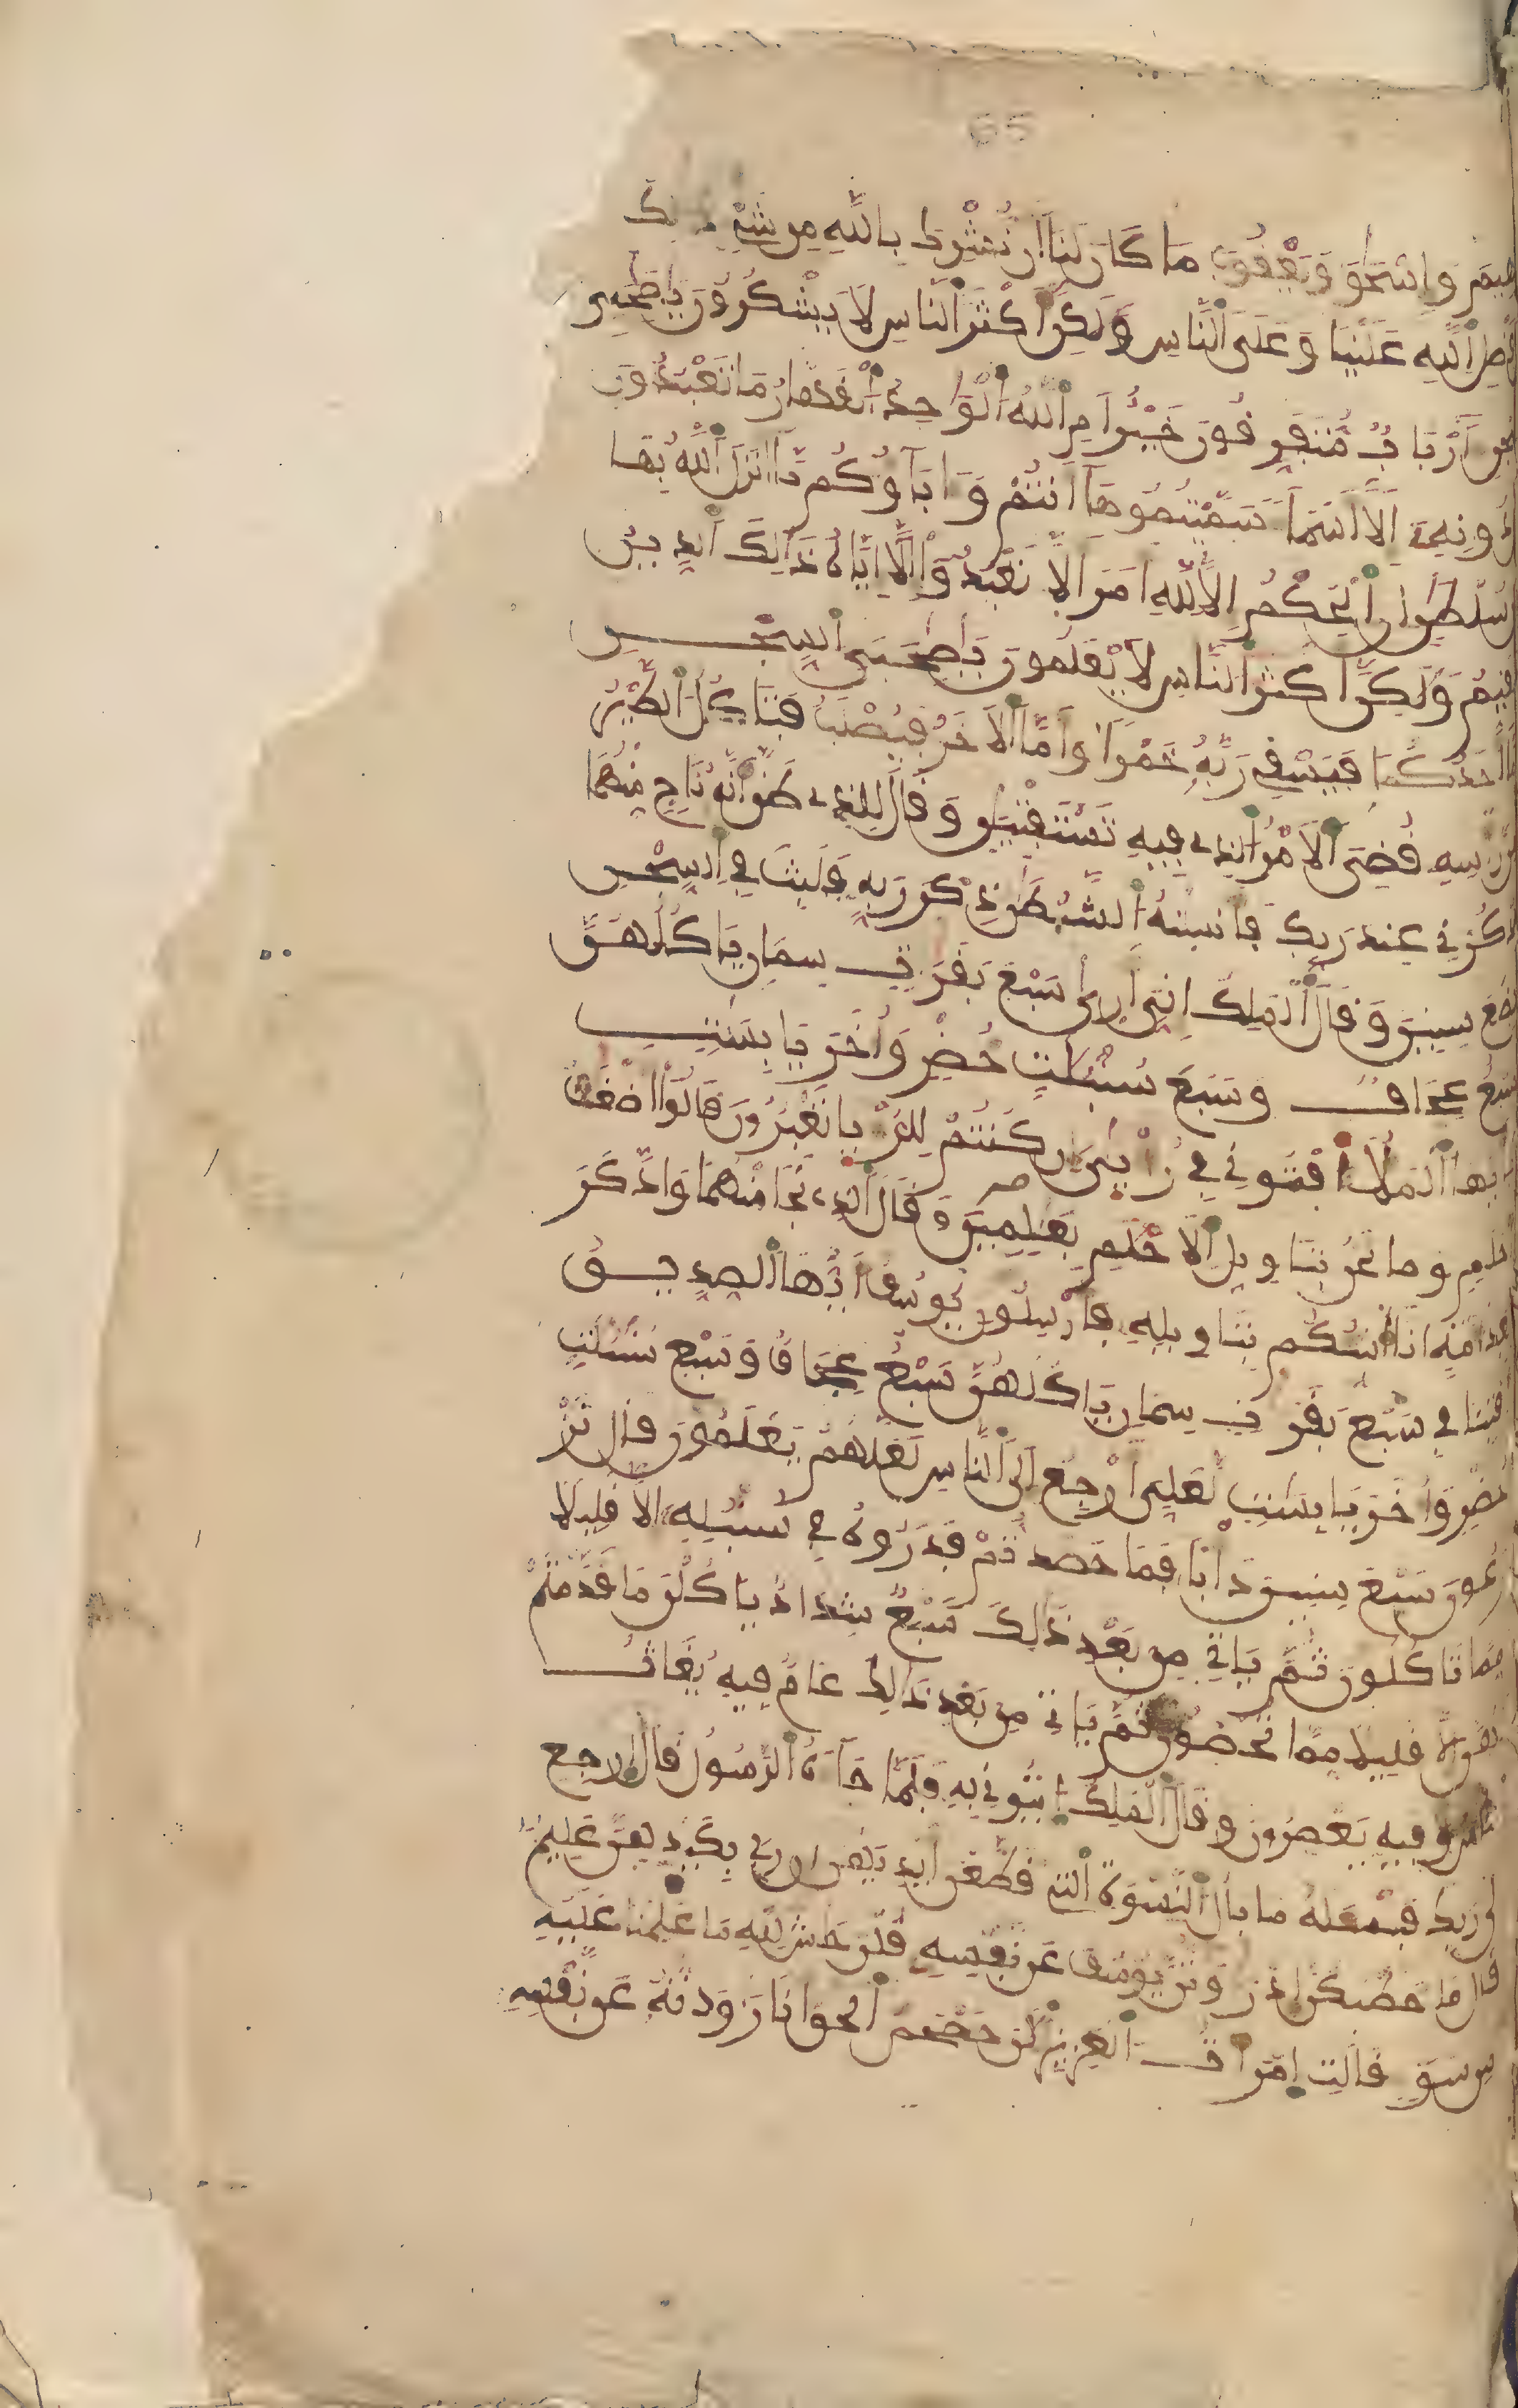 65
هيم وإسحق ويعقوب ما كان لنا أن نشرك بالله من شيء ذلك
فضل الله علينا وعلى الناس ولكن أكثر الناس لا يشكرون يصحبي
السجن أرباب متفرقون خير أم الله الواحد القهار ما تعبدون
من دونه إلا أسماء سميتموها أنتم وءاباؤكم ما أنزل الله بها
من سلطن إن الحكم إلا لله أمر ألا تعبدوا إلا إياه ذلك الدين
القيم ولكن أكثر الناس لا يعلمون يصحبي السجن
أما أحدكما فيسقي ربه خمرا وأما الآخر فيصلب فتأكل الطير
من رأسه قضي الأمر الذي فيه تستفتين وقال للذي ظن أنه ناج منهما
اذكرني عند ربك فأنسيه الشيطن ذكر ربه فلبث في السجن
بضع سنين وقال الملك إني أرى سبع بقرت سمان يأكلهن
سبع عجاف وسبع سنبلت خضر وأخر يابست
يأيها الملأ أفتوني في رءيي إن كنتم للرءيا تعبرون قالوا أضغث
أحلم وما نحن بتأويل الأحلم بعلمين وقال الذي نجا منهما وادكر
بعد أمة أنا أنبئكم بتأويله فأرسلون يوسف أيها الصديق
أفتنا في سبع بقرت سمان يأكلهن سبع عجاف وسبع سنبلت
خضر وأخر يابست لعلي أرجع إلى الناس لعلهم يعلمون قال تزر
عون سبع سنين دأبا فما حصدتم فذروه في سنبله إلا قليلا
مما تأكلون ثم يأتي من بعد ذلك سبع شداد يأكلن ما قدمتم
لهن إلا قليلا مما تحصنون ثم يأتي من بعد ذلك عام فيه يغاث
الناس وفيه يعصرون وقال الملك ائتوني به فلما جاءه الرسول قال ارجع
إلى ربك فسئله ما بال النسوة التي قطعن أيديهن إن ربي بكيدهن عليم
قال ما خطبكن إذ رودتن يوسف عن نفسه قلن حش لله ما علمنا عليه
من سوء قالت امرأت العزيز الن حصحص الحق أنا رودته عن نفسه